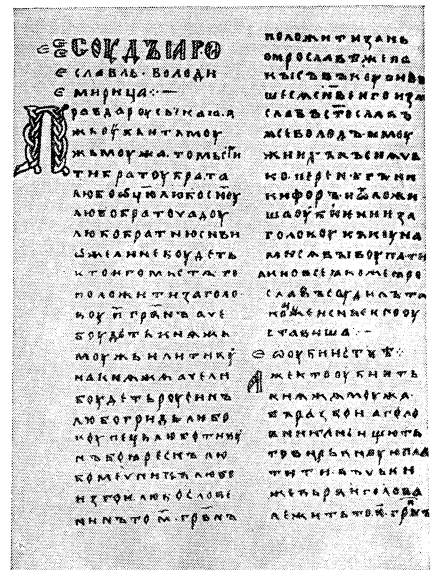 СОУДЪ ꙖРО
СЛАВЛЬ · ВОЛОДИ
МИРИЦА :·—
ПРАВДА РОУСЬКАꙖ · А
ЖЬ ОУБИѤТЬ МОУ
ЖЬ МОУЖА · ТО МЬСТИ
ТИ БРАТОУ БРАТА
ЛЮБО ОЦЮ ЛЮБО СНОУ
ЛЮБО БРАТОУЧАДОУ
ЛЮБО БРАТНЮ СНВИ
ѠЖЕ ЛИ НЕ БОУДЕТЬ
КТО ѤГО МЬСТѦ ТО
ПОЛОЖИТИ ЗА ГОЛО
ВОУ П҃ ГРВНЪ АЧЕ
БОУДЕТЬ КНѦЖЬ
МОУЖЬ ИЛИ ТИВОУ
НА КНѦЖА АЧЕ ЛИ
БОУДЕТЬ РОУСИНЪ
ЛЮБО ГРИДЬ ЛЮБО
КОУПЕЧЬ ЛЮБО ТИВОУ
НЪ БОꙖРЕСКЪ ЛЮ
БО МЕЧНИКЪ ЛЮБО
ИЗГОИ ЛЮБО СЛОВЕ
НИНЪ ТО М҃ · ГРВНЪ
ПОЛОЖИТИ ЗА НЬ
ПО ꙖРОСЛАВѢ ЖЕ ПА
КЫ СЪВЪКОУПИВЪ
ШЕСѦ СНВЕ ѤГО ИЗѦ
СЛАВЪ СТОСЛАВЪ
ВСЕВОЛОДЪ И МОУ
ЖИ ИХЪ
ПЕРЕНѢГЪ НИ
КИФОРЪ И ѾЛОЖИ
ША ОУБИѤНИѤ ЗА
ГОЛОВОУ НЪ КОУНА
МИ СѦ ВЫКОУПАТИ
А ИНО ВСЕ ꙖКОЖЕ ꙖРО
СЛАВЪ СОУДИЛЪ ТА
КОЖЕ И СНВЕ ѤГО ОУ
СТАВИША :·—
Ѡ ОУБИИСТВѢ :·
АЖЕ КТО ОУБИѤТЬ
КНѦЖА МОУЖА ·
ВЪ РАЗБОИ А ГОЛО
ВНИКА НЕ ИЩЮТЬ
ТО ВИРЬВНОУЮ ПЛА
ТИТИ · ВЪ ЧЬѤИ
ЖЕ ВЬРВИ ГОЛОВА
ЛЕЖИТЬ ТО П҃ · ГРВНЪ